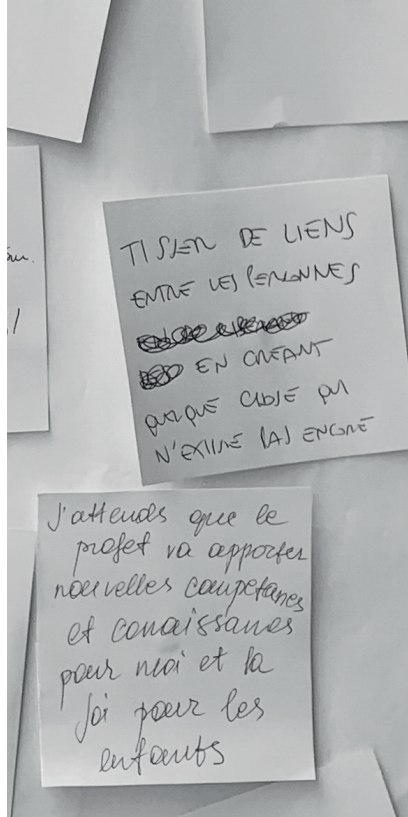 TISSER DE LIENS
ENTRE LES PERSONNES
EN CRÉANT
QUELQUE CHOSE QUI
N'EXISTE PAS ENCORE
J'attends que le
projet va apporter
nouvelles coupetanes
et conaissanes
pour moi et la
joi pour les
enfants